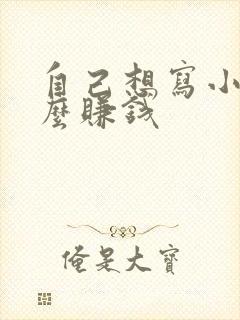 自己想寫小
麼賺錢
俺是大寶